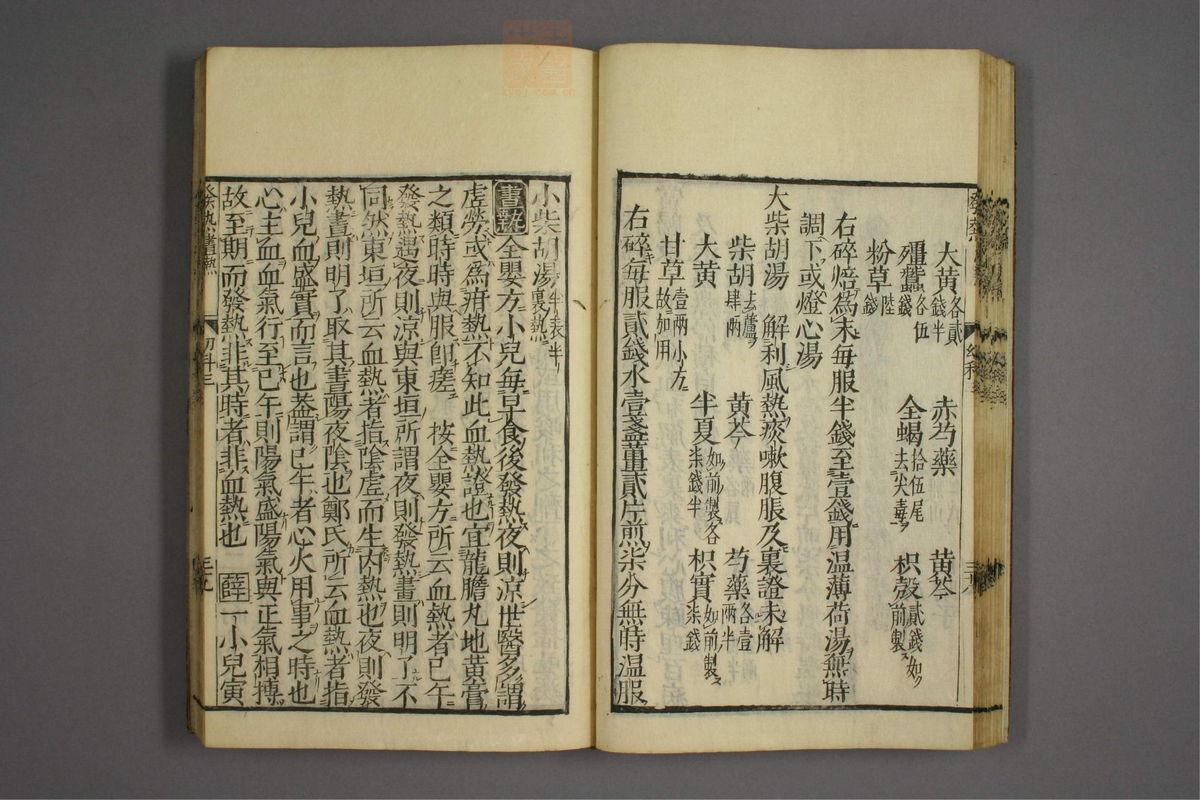 大黄各貳錢半 赤芍藥 黄芩
殭蠶各伍錢 全蝎拾伍尾去尖毒 枳殼貳錢如前製
粉草陸錢
右碎焙爲末每服半錢至壹錢用温薄荷湯無時
調下或燈心湯
大柴胡湯 解利風熱痰嗽腹脹及裏證未解
柴胡去蘆肆兩 黄芩 芍藥各壹兩半
大黄 半夏如前製各柒錢半 枳實如前製柒錢
甘草壹兩小方故如用
右碎每服貳錢水壹盞薑貳片煎柒分無時温服
發熱晝熱 幼科三
小柴胡湯半表半裏熱
晝熱 全嬰方小兒每早食後發熱夜則涼世醫多謂
虚勞或爲疳熱不知此血熱證也宜龍膽丸地黄膏
之類時時與服即瘥 按全嬰方所云血熱者巳午
發熱遇夜則涼與東垣所謂夜則發熱晝則明了不
同然東垣所云血熱者指陰虚而生内熱也夜則發
熱晝則明了取其晝陽夜陰也鄭氏所云血熱者指
小兒血盛實而言也蓋謂巳午者心火用事之時也
心主血血氣行至巳午則陽氣盛陽氣與正氣相搏
故至期而發熱非其時者非血熱也 薛 一小兒寅